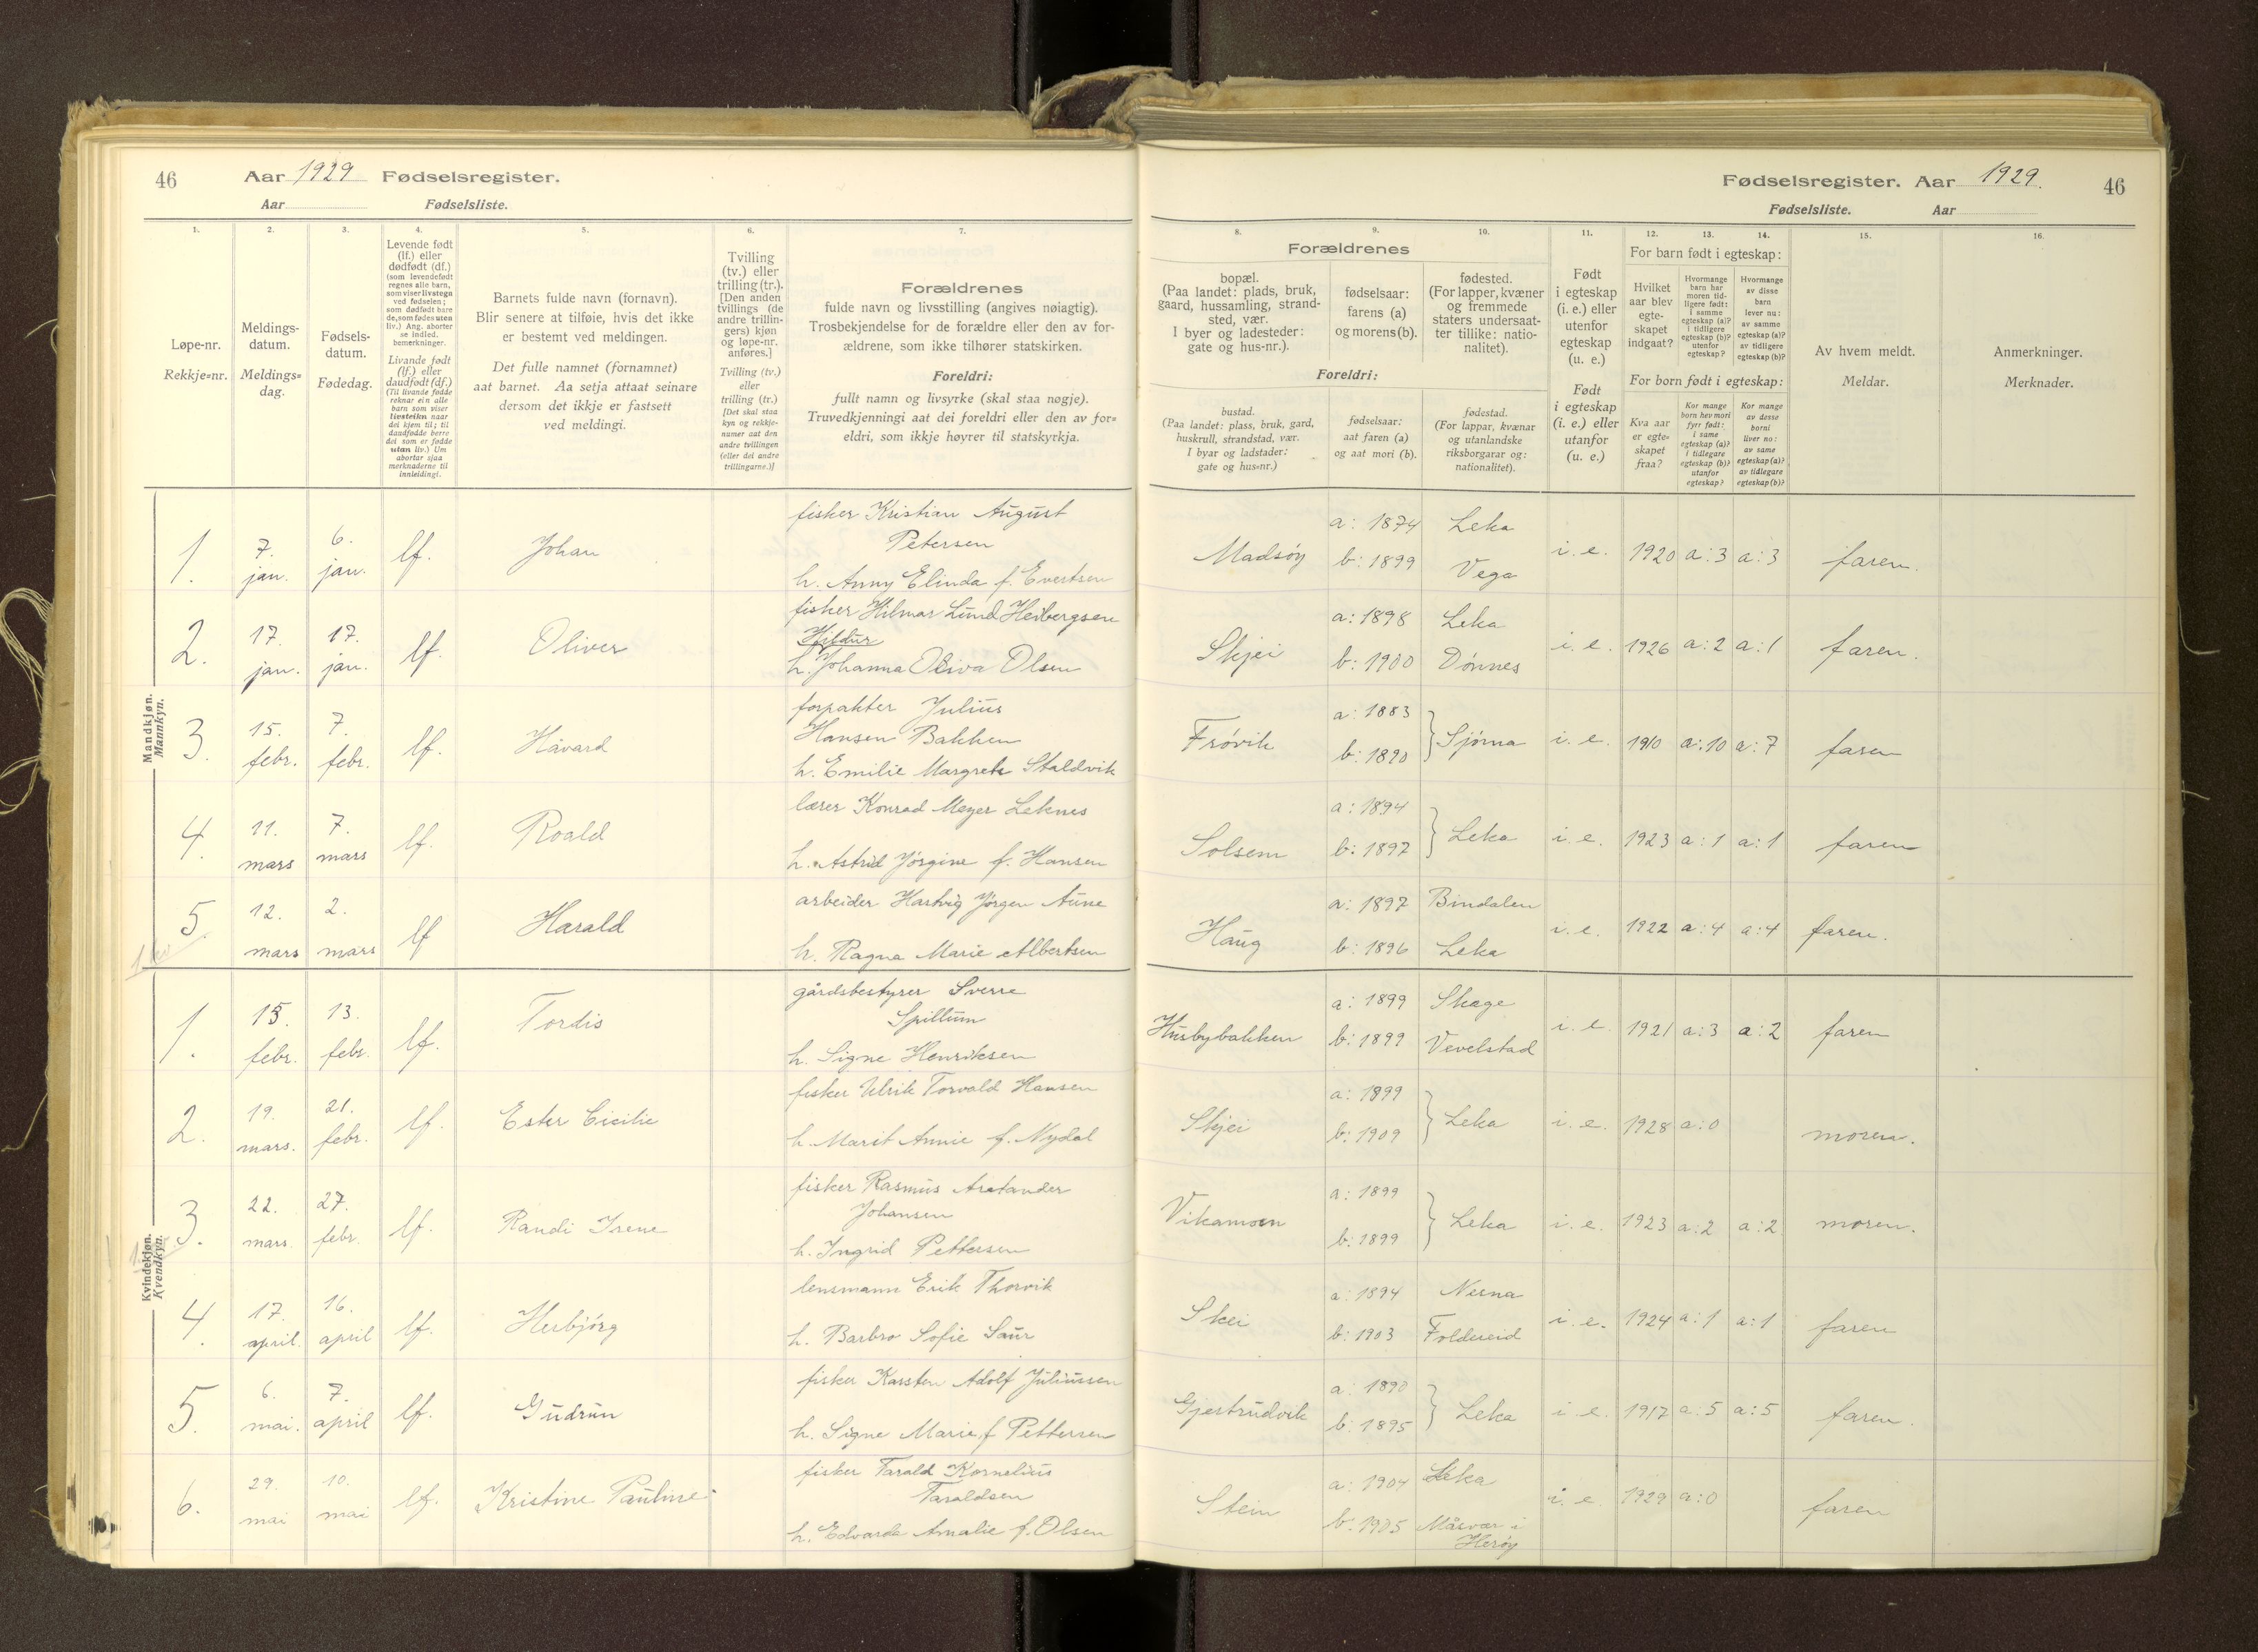 46 Aar 1929 Fødselsregister.
Aar Fødselsliste.
1. 2. 3. 4. 5. 6. 7.
Løpe-nr.
Rekkje=nr.
Meldings-
datum.
Meldings=
dag.
Fødsels-
datum.
Fødedag.
Levende født
(lf.) eller
dødfødt (df.)
(som levendefødt
regnes alle barn,
som viser livstegn
ved fødselen;
som dødfødt bare
de, som fødes uten
liv.) Ang. aborter
se indled.
bemerkninger.
Livande født
(lf.) eller
daudfødt (df.)
(Til livande fødde
reknar ein alle
barn som viser
livsteikn naar
dei kjem til; til
daudfødde berre
dei som er fødde
utan liv.) Um
abortar sjaa
merknaderne til
innleidingi.
Barnets fulde navn (fornavn).
Blir senere at tilføie, hvis det ikke
er bestemt ved meldingen.
Det fulle namnet (fornamnet)
aat barnet. Aa setja attaat seinare
dersom det ikkje er fastsett
ved meldingi.
Tvilling
(tv.) eller
trilling (tr.).
[Den anden
tvillings (de
andre trillin-
gers) kjøn
og løpe-nr.
anføres.]
Tvilling (tv.)
eller
trilling (tr.)
[Det skal staa
kyn og rekkje-
numer aat den
andre tvillingen
(eller dei andre
trillingarne.)]
Forældrenes
fulde navn og livsstilling (angives nøiagtig).
Trosbekjendelse for de forældre eller den av for-
ældrene, som ikke tilhører statskirken.
Foreldri:
fullt namn og livsyrke (skal staa nøgje).
Truvedkjenningi aat dei foreldri eller den av for=
eldri, som ikkje høyrer til statskyrkja.
Mandkjøn.
Mannkyn.
1. 7. jan. 6. jan. lf. Johan
fisker Kristian August
Petersen
h. Anny Elinda f. Evertsen
2. 17. jan. 17. jan. lf. Oliver
fisker Hilmar Lund Heibergsen
Hildur
h. Johanna Oliva Olsen
3. 15. febr. 7. febr. lf. Håvard
forpakter Julius
Hansen Bakken
h. Emilie Margrete Staldvik
4. 11. mars 7. mars lf. Roald
lærer Konrad Meyer Leknes
h. Astrid Jørgine f. Hansen
5. 12. mars 2. mars lf Harald
arbeider Hartvig Jørgen Aune
h. Ragna Marie Albertsen
Kvindekjøn.
Kvendkyn.
1. 15. febr. 13. febr. lf. Tordis
gårdsbestyrer Sverre
Spillum
h. Signe Henriksen
2. 19. mars. 21. febr. lf. Ester Cicilie
fisker Ulrik Torvald Hansen
h. Marit Annie f. Nydal
3. 22. mars 27. febr. lf. Randi Irene
fisker Rasmus Arntander
Johansen
h. Ingrid Pettersen
4. 17. april. 16. april lf. Herbjørg
lensmann Erik Thorvik
h. Barbro Sofie Saur
5. 6. mai. 7. april lf. Gudrun
fisker Karsten Adolf Juliussen
h. Signe Marie f Pettersen
6. 29. mai 10. mai lf. Kristine Pauline
fisker Tarald Kornelius
Taraldsen
h. Edvarda Amalie f. Olsen
Fødselsregister. Aar 1929. 46
Fødselsliste. Aar
8. 9. 10. 11. 12. 13. 14. 15. 16.
Forældrenes
bopæl.
(Paa landet: plads, bruk,
gaard, hussamling, strand-
sted, vær.
I byer og ladesteder:
gate og hus-nr.).
fødselsaar:
farens (a)
og morens (b).
fødested.
(For lapper, kvæner
og fremmede
staters undersaat-
ter tillike: natio-
nalitet).
Foreldri:
bustad.
(Paa landet: plass, bruk, gard,
huskrull, strandstad, vær.
I byar og ladstader:
gate og hus=nr.)
fødselsaar:
aat faren (a)
og aat mori (b).
fødestad.
(For lappar, kvænar
og utanlandske
riksborgarar og:
nationalitet).
Født
i egteskap
(i. e.) eller
utenfor
egteskap
(u. e.)
Født
i egteskap
(i. e.) eller
utanfor
(u. e.)
For barn født i egteskap:
Hvilket
aar blev
egte-
skapet
indgaat?
Hvormange
barn har
moren tid-
ligere født:
i samme
egteskap (a)?
i tidligere
egteskap (b)?
utenfor
egteskap?
Hvormange
av disse
barn
lever nu:
av samme
egteskap (a)?
av tidligere
egteskap (b)?
For born født i egteskap:
Kva aar
er egte=
skapet
fraa?
Kor mange
born hev mori
fyrr født:
i same
egteskap (a)?
i tidlegare
egteskap (b)?
utanfor
egteskap?
Kor mange
av desse
borni
liver no:
av same
egteskap (a)?
av tidlegare
egteskap (b)?
Av hvem meldt.
Meldar.
Anmerkninger.
Merknader.
Madsøy a: 1874 b: 1899 Leka Vega i. e. 1920 a: 3 a: 3 faren.
Skjei a: 1898 b: 1900 Leka Dønnes i. e. 1926 a: 2 a: 1 faren.
Frøvik a: 1883 b: 1890 } Sjøma i. e. 1910 a: 10 a: 7 faren
Solsem a: 1894 b: 1897 } Leka i. e. 1923 a: 1 a: 1 faren
Haug a: 1897 b: 1896 Bindalen Leka i. e. 1922 a: 4 a: 4 faren.
Husbybakken a: 1899 b: 1899 Skage Vevelstad i. e. 1921 a: 3 a: 2 faren
Skjei a: 1899 b: 1909 } Leka i. e. 1928 a: 0 moren.
Vikamoen a: 1899 b: 1899 } Leka i. e. 1923 a: 2 a: 2 moren.
Skei a: 1894 b: 1903 Nesna Foldereid i. e. 1924 a: 1 a: 1 faren
Gjertrudvik a: 1890 b: 1895 } Leka i e. 1917 a: 5 a: 5 faren.
Stein a: 1904 b: 1905 Leka Måsvær i Herøy i. e. 1929 a: 0 faren